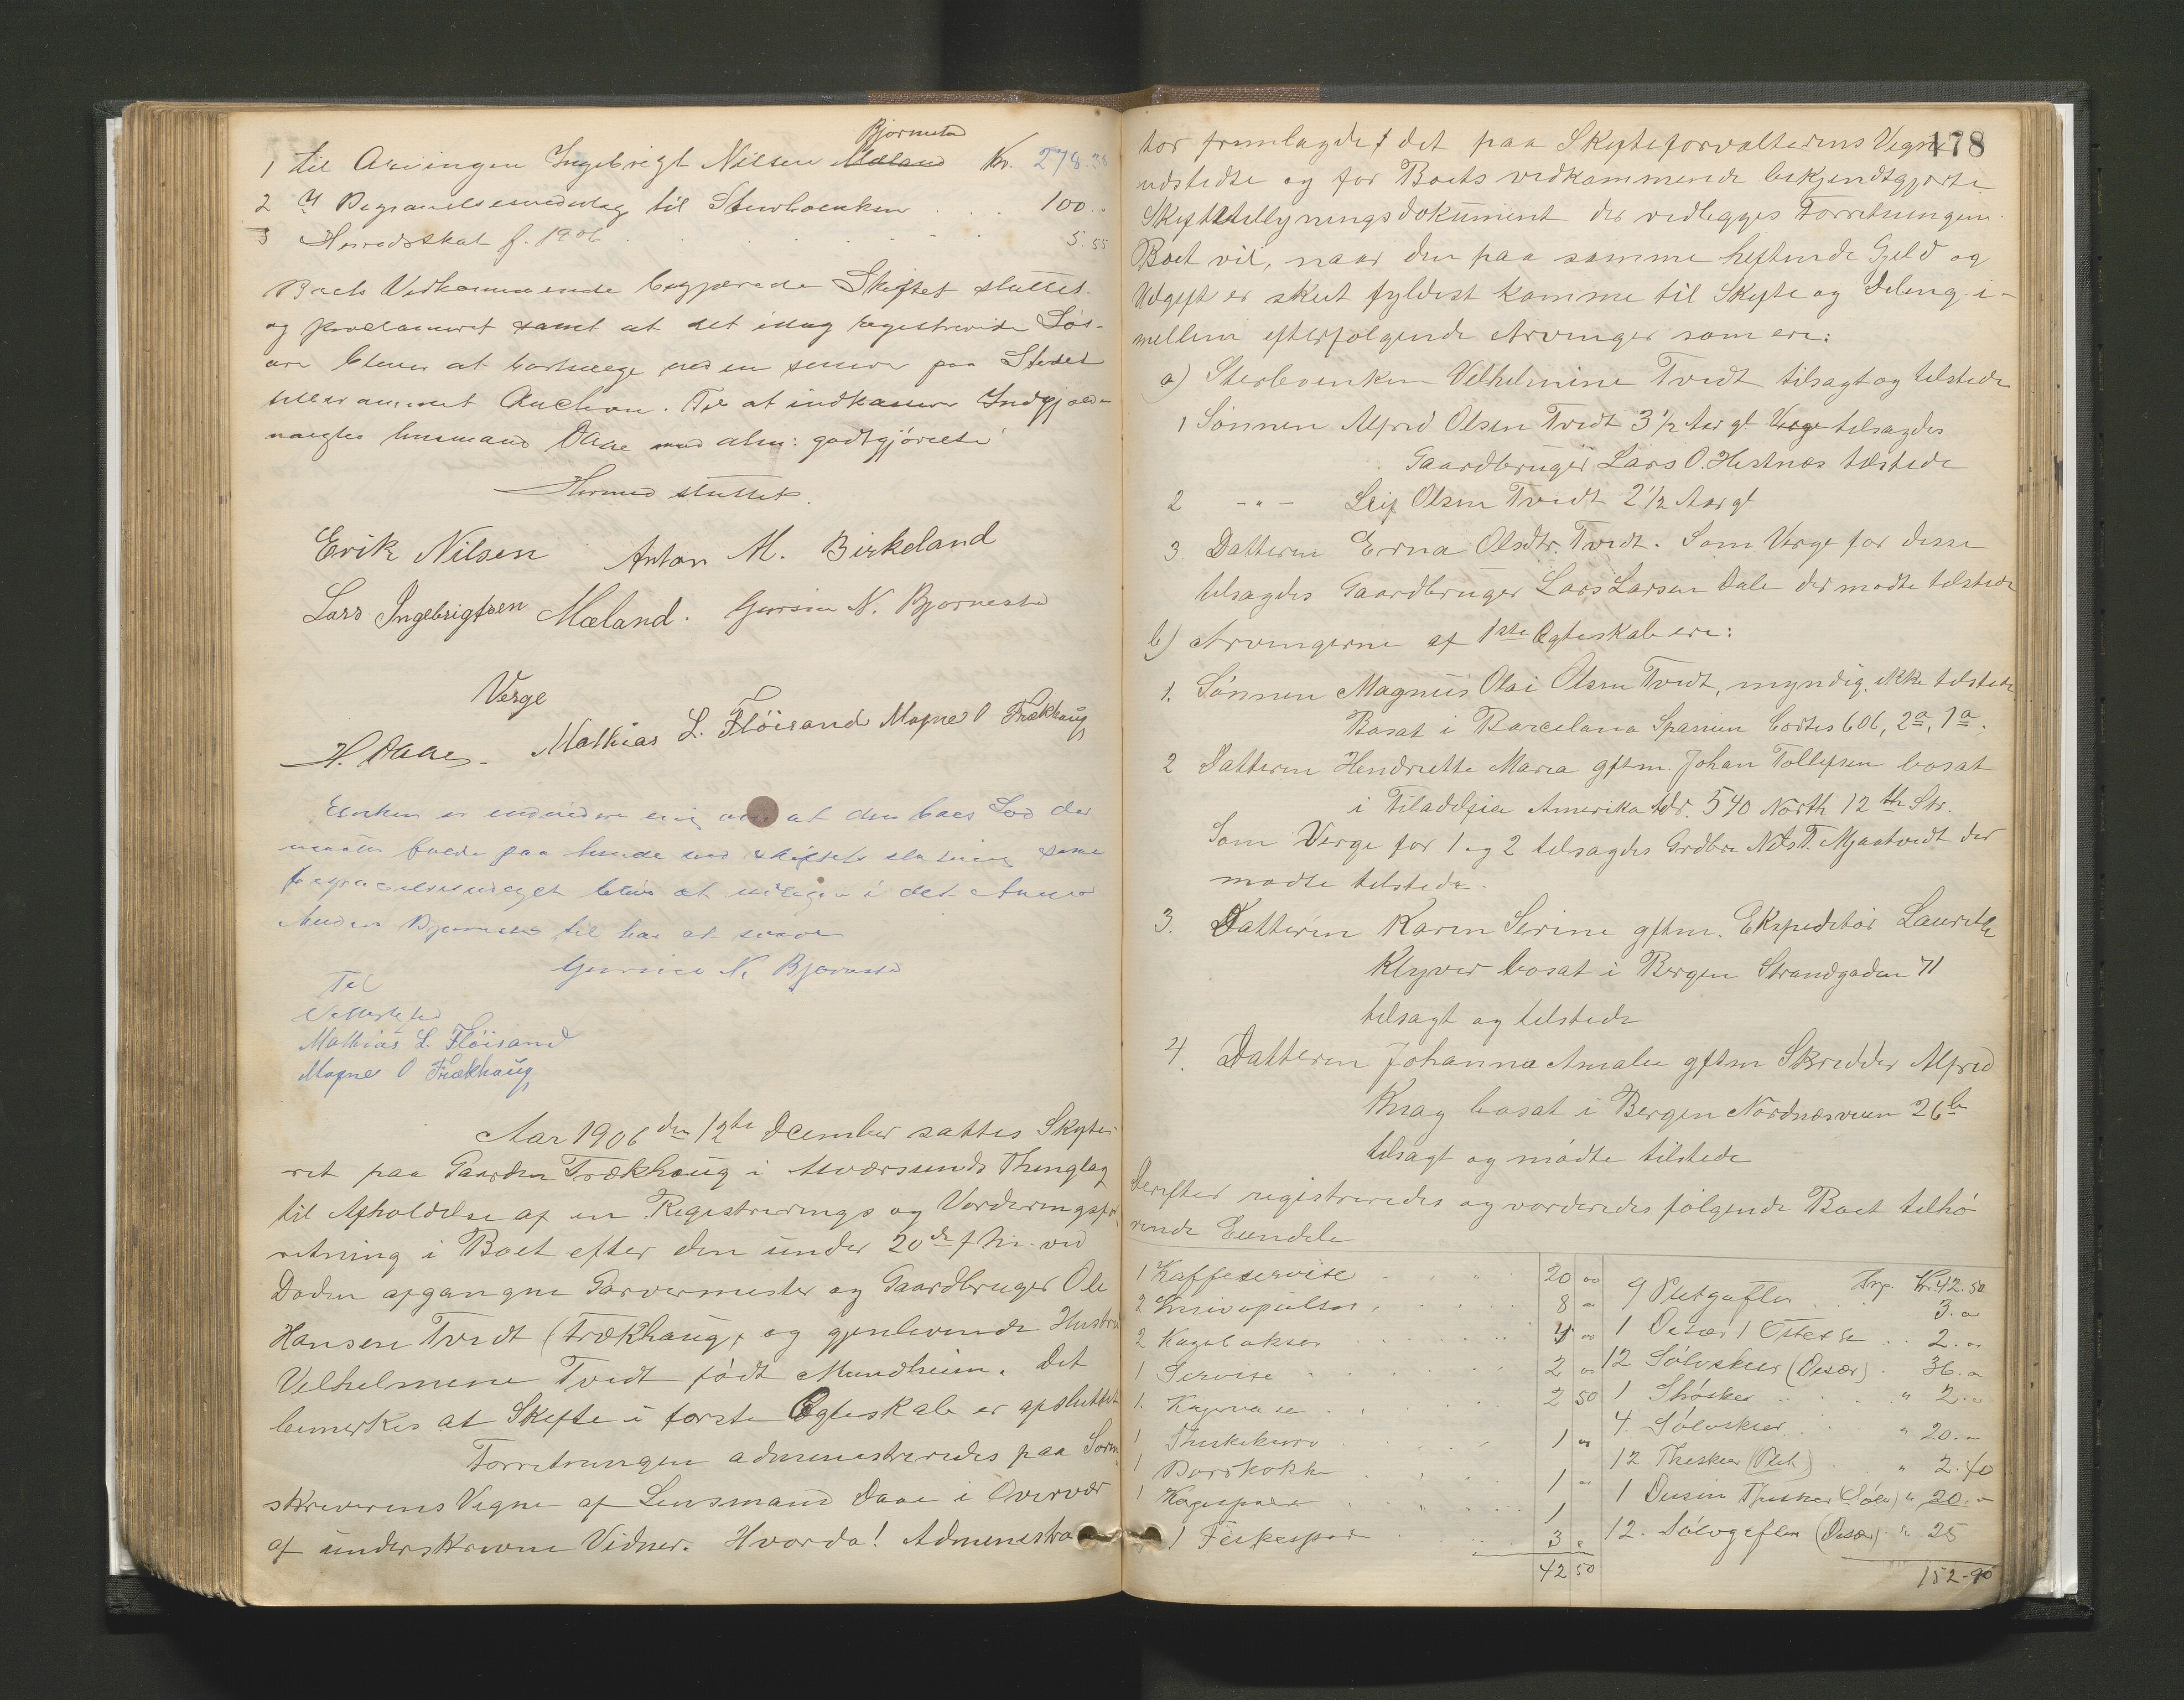 Bjørnestad
1 til Arvingen Ingebrigt Nilsen Mæland Kr. 278.38
2 Begravelsesudlæg til Sterboenken 100..
3 Herredsskat f. 1906 5.55
Boets Vedkommende begjærede Skiftet sluttet
og proclameret samt at det idag registrerede Løs-
øre blever at bortsælge ved en senere paa Stedet
Auction. Til at indkassere
Daae med alm: godtgjörelse
Hermed sluttet.
Erik Nilsen Anton M. Birkeland
Lars Ingebrigtsen Mæland. Gurine N. Bjørnestad
Verge
H. Daae. Mathias L. Flöisand Magne O Frækhaug
Enken er enig at den Lod der
maatte falde paa hende ved skiftets slutning samt
begravelsesudlæget bliver at udlægge i det
til har at svare
Gurine N. Bjørnestad
Til
Vitterlighed
Mathias L. Flöisand
Magne O Frækhaug
Aar 1906 den 12te December sattes Skifte-
ret paa Gaarden Frækhaug i Alværsunds Thinglag
til Afholdelse af en Registrerings og Vurderingsfor-
retning i Boet efter den under 20de f. M. ved
Døden afgangne Garvermester og Gaardbruger Ole
Hansen Tvedt (Frækhaug, og gjenlevende Hustru
Vilhelmine Tvedt født Mundheim. Det
bemerkes at Skifte i første Ægteskab er afsluttet
Forretningen administreredes paa Soren-
skriverens Vegne af Lensmand Daae i Overvær
af underskrevne Vidner. Hvorda! Administra-
178
tor fremlagde det paa Skifteforvalterens Vegne
udstedte og for Boets vedkommende bekjendtgjorte
Skiftetillysningsdokument der vedlægges Forretningen.
Boet vil, naar den paa samme heftende Gjeld og
Udgift er skeet fyldest komme til Skifte og Deling i-
mellem efterfølgende Arvinger som ere:
a) Sterboenken Vilhelmine Tvedt tilsagt og tilstede
1 Sønnen Alfred Olsen Tvedt 3½ Aar gl Verge tilsagdes
Gaardbruger Lars O. Hestnes tilstede
2 - " - Leif Olsen Tvedt 2½ Aar gl
3 Datteren Erna Olsdtr. Tvedt. Som Verge for disse
tilsagdes Gaardbruger Lars Larsen Dale der mødte tilstede
b) Arvingerne af 1ste Ægteskab ere:
1. Sønnen Magnus Olai Olsen Tvedt, myndig, ikke tilstede
Bosat i Barcelona Spanien Cortes 606, 2a, 1a.
2 Datteren Hendriette Maria gftm. Johan Tollefsen bosat
i Filadelfia Amerika Adr. 540 North 12th Str.
Som Verge for 1 og 2 tilsagdes Grdbr. Nils T. Mjaatvedt der
mødte tilstede.
3. Datteren Karen Serine gftm. Ekspeditør Lauritz
Klyver bosat i Bergen Strandgaden 71
tilsagt og tilstede
4. Datteren Johanna Amalie gftm Skredder Alfred
Knag bosat i Bergen Nordnesveien 26b
tilsagt og mødte tilstede
Derefter registreredes og vorderedes følgende Boet tilhø-
rende Eiendele
1 Kaffeservise 20 00
2 8 "
2 Kagebakser 4 00
1 Servise 2 00
1. Kagevase 2 50
1 Theskekurv 1 00
1 1 "
1 Kagespade 1
1 Fiskespade 3 "
42 50
Trsp. Kr. 42.50
9 Pletgafler 3.00
1 Dusin 1 Osteske 2.00
12 Sølvskeer (Desær) 36.00
1 " 2.00
4. Sølvskeer " 20.00
12 Theskeer (Plet) " 2.40
1 Dusin Theskeer (Sølv) " 20.00
12. Sølvgafler (Desær) " 25
152-90